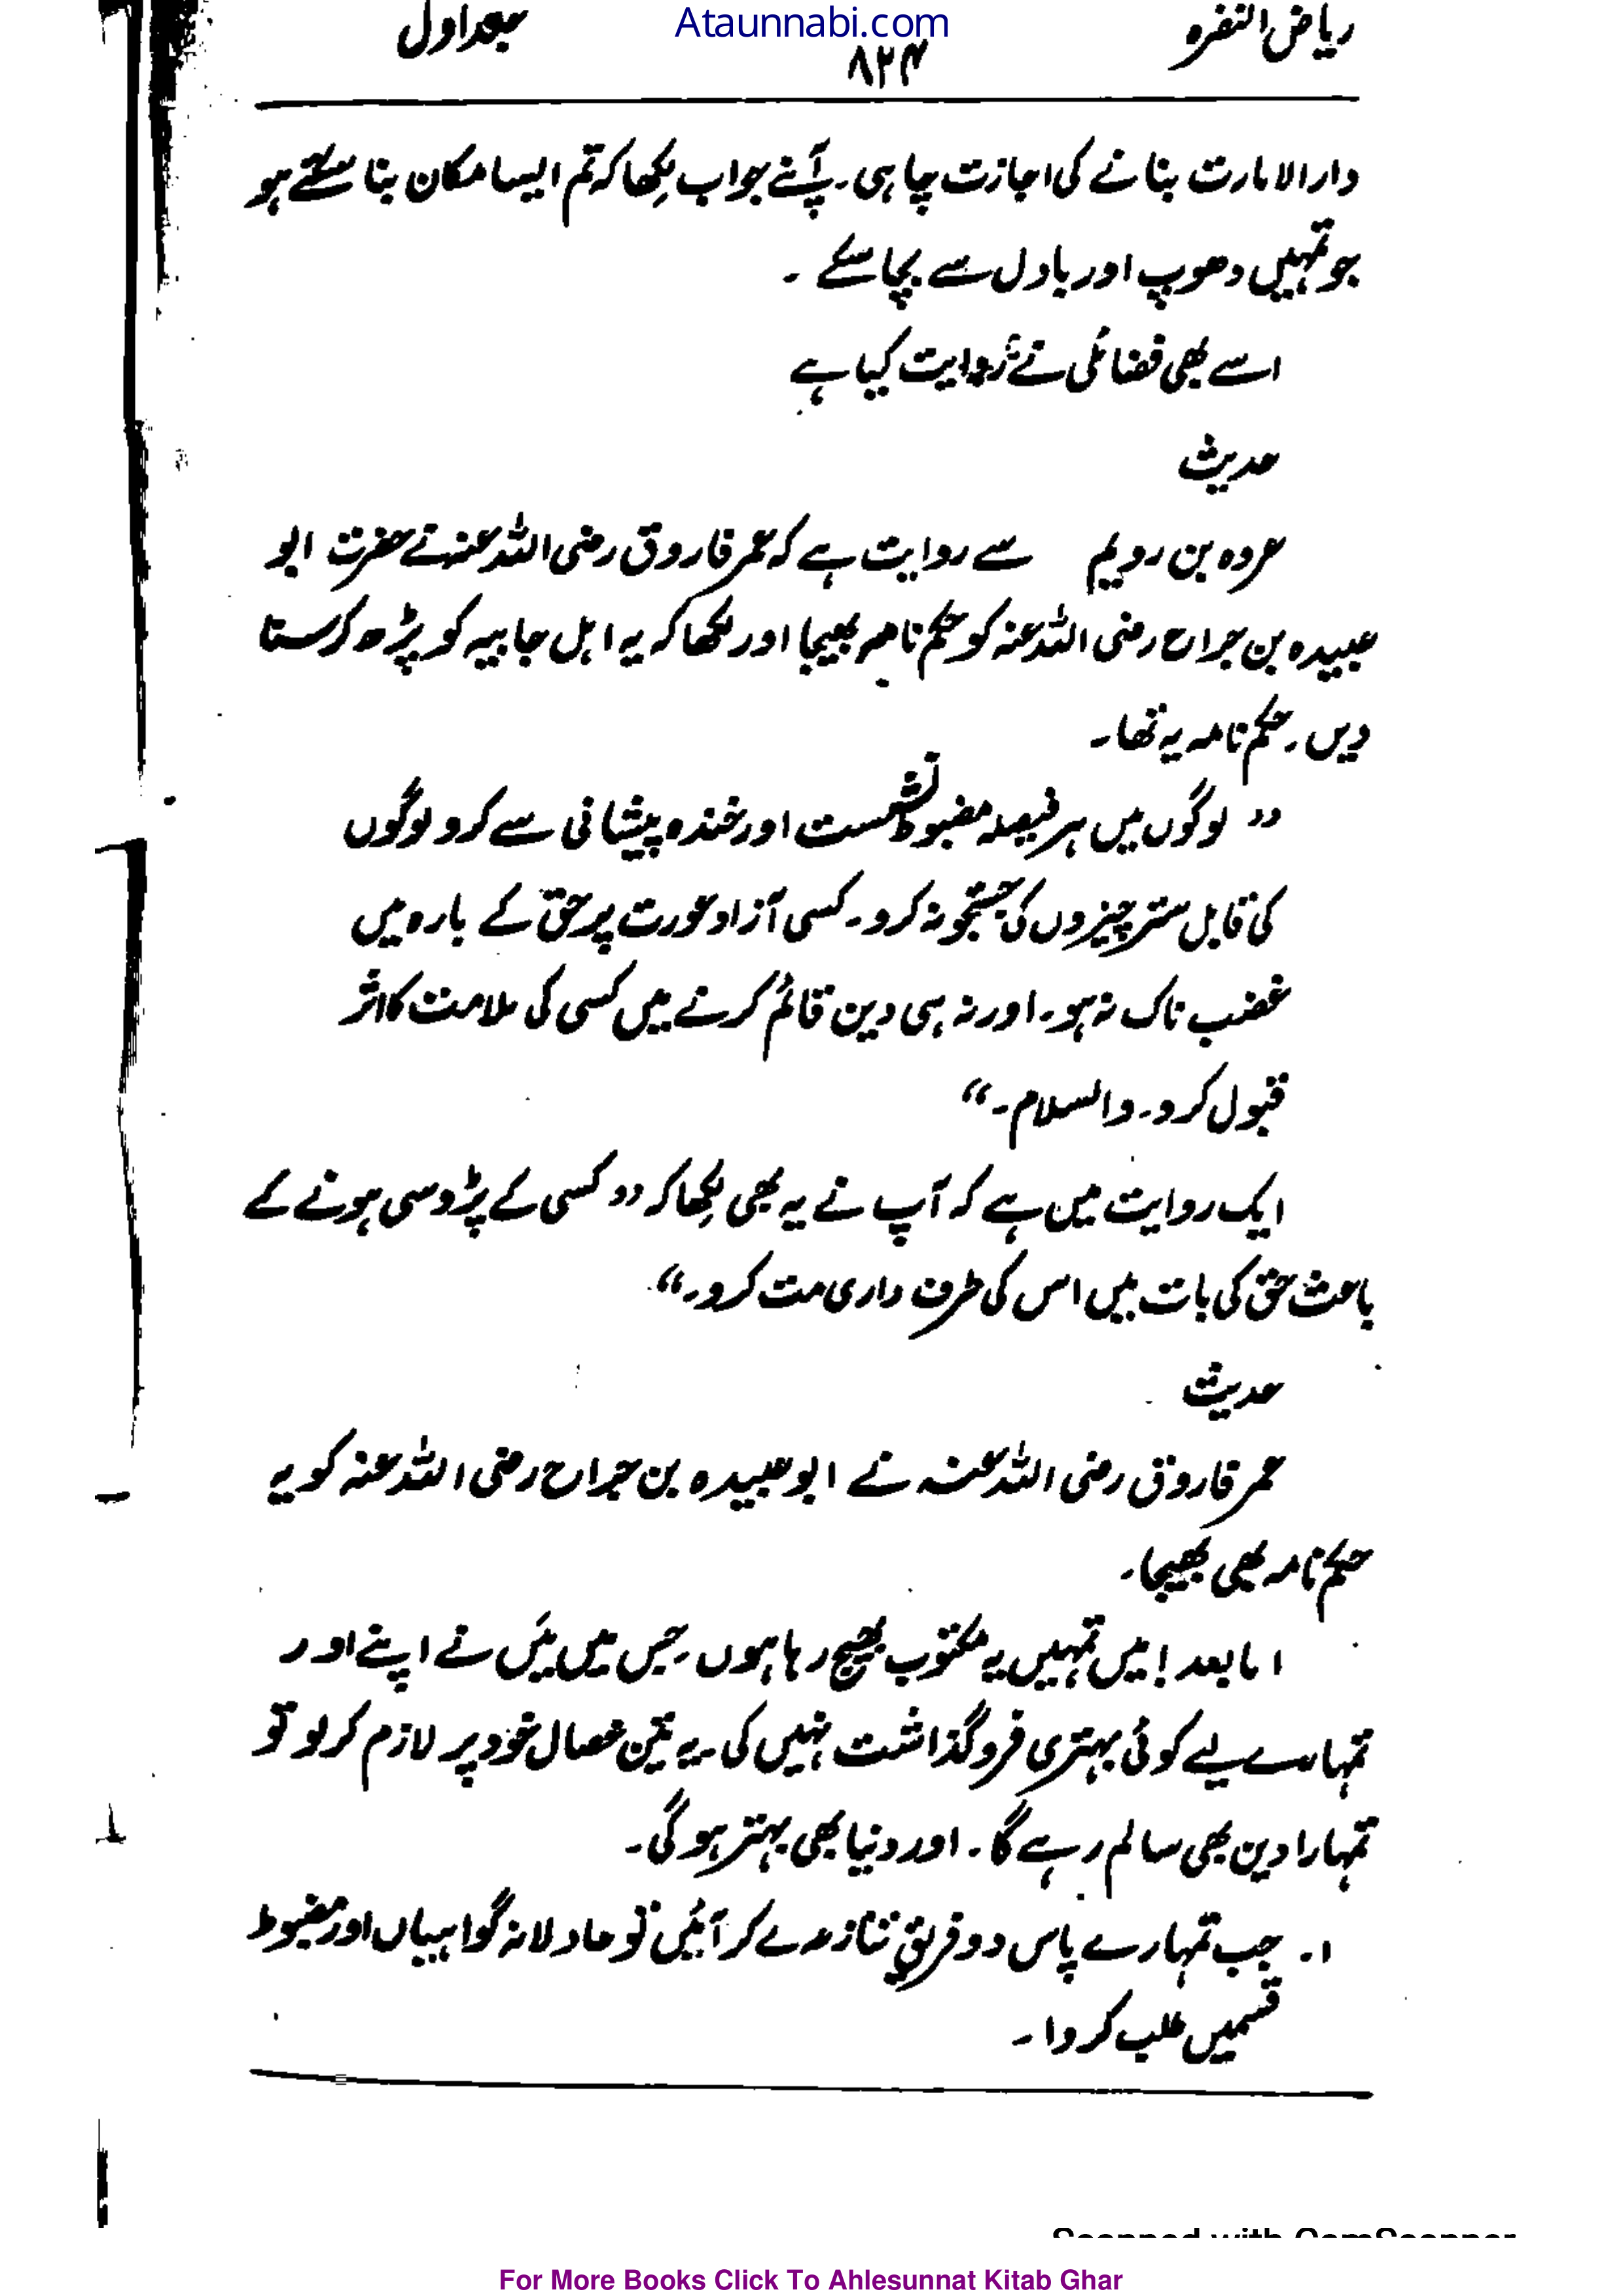 Ataunnabi.com
ریاض النضرہ ۸۲۴ جلد اول
دارالامارت بنانے کی اجازت چاہی۔ آپنے جواب لکھا کہ تم ایسا مکان بنا سکتے ہو
جو تمہیں دھوپ اور بادل سے بچا سکے ۔
اسے بھی فضائلی نے روایت کیا ہے
حدیث
عروہ بن رویم سے روایت ہے کہ عمر فاروق رضی اللہ عنہ نے حضرت ابو
عبیدہ بن جراح رضی اللہ عنہ کو حکم نامہ بھیجا اور لکھا کہ یہ اہل جابیہ کو پڑھ کر سنا
دیں۔ حکم نامہ یہ تھا۔
” لوگوں میں ہر فیصلہ مضبوط نشست اور خندہ پیشانی سے کرو لوگوں
کی قابل ستر چیزوں کی جستجو نہ کرو۔ کسی آزاد عورت پر حق کے بارہ میں
غضب ناک نہ ہو۔ اور نہ ہی دین قائم کرنے میں کسی کی ملامت کا اثر
قبول کرو۔ والسلام۔“
ایک روایت میں ہے کہ آپ نے یہ بھی لکھا کہ ”کسی کے پڑوسی ہونے کے
باعث حق کی بات میں اس کی طرف داری مت کرو۔“
حدیث
عمر فاروق رضی اللہ عنہ نے ابو عبیدہ بن جراح رضی اللہ عنہ کو یہ
حکم نامہ بھی بھیجا۔
اما بعد! میں تمہیں یہ مکتوب بھیج رہا ہوں جس میں میَں نے اپنے اور
تمہارے لیے کوئی بہتری فروگذاشت نہیں کی۔ یہ تین خصال خود پر لازم کر لو تو
تمہارا دین بھی سالم رہے گا۔ اور دنیا بھی بہتر ہو گی۔
۱۔ جب تمہارے پاس دو فریق تنازعہ لے کر آئیں تو عادلانہ گواہیاں اور مضبوط
قسمیں طلب کرو۔
Scanned with CamScanner
For More Books Click To Ahlesunnat Kitab Ghar